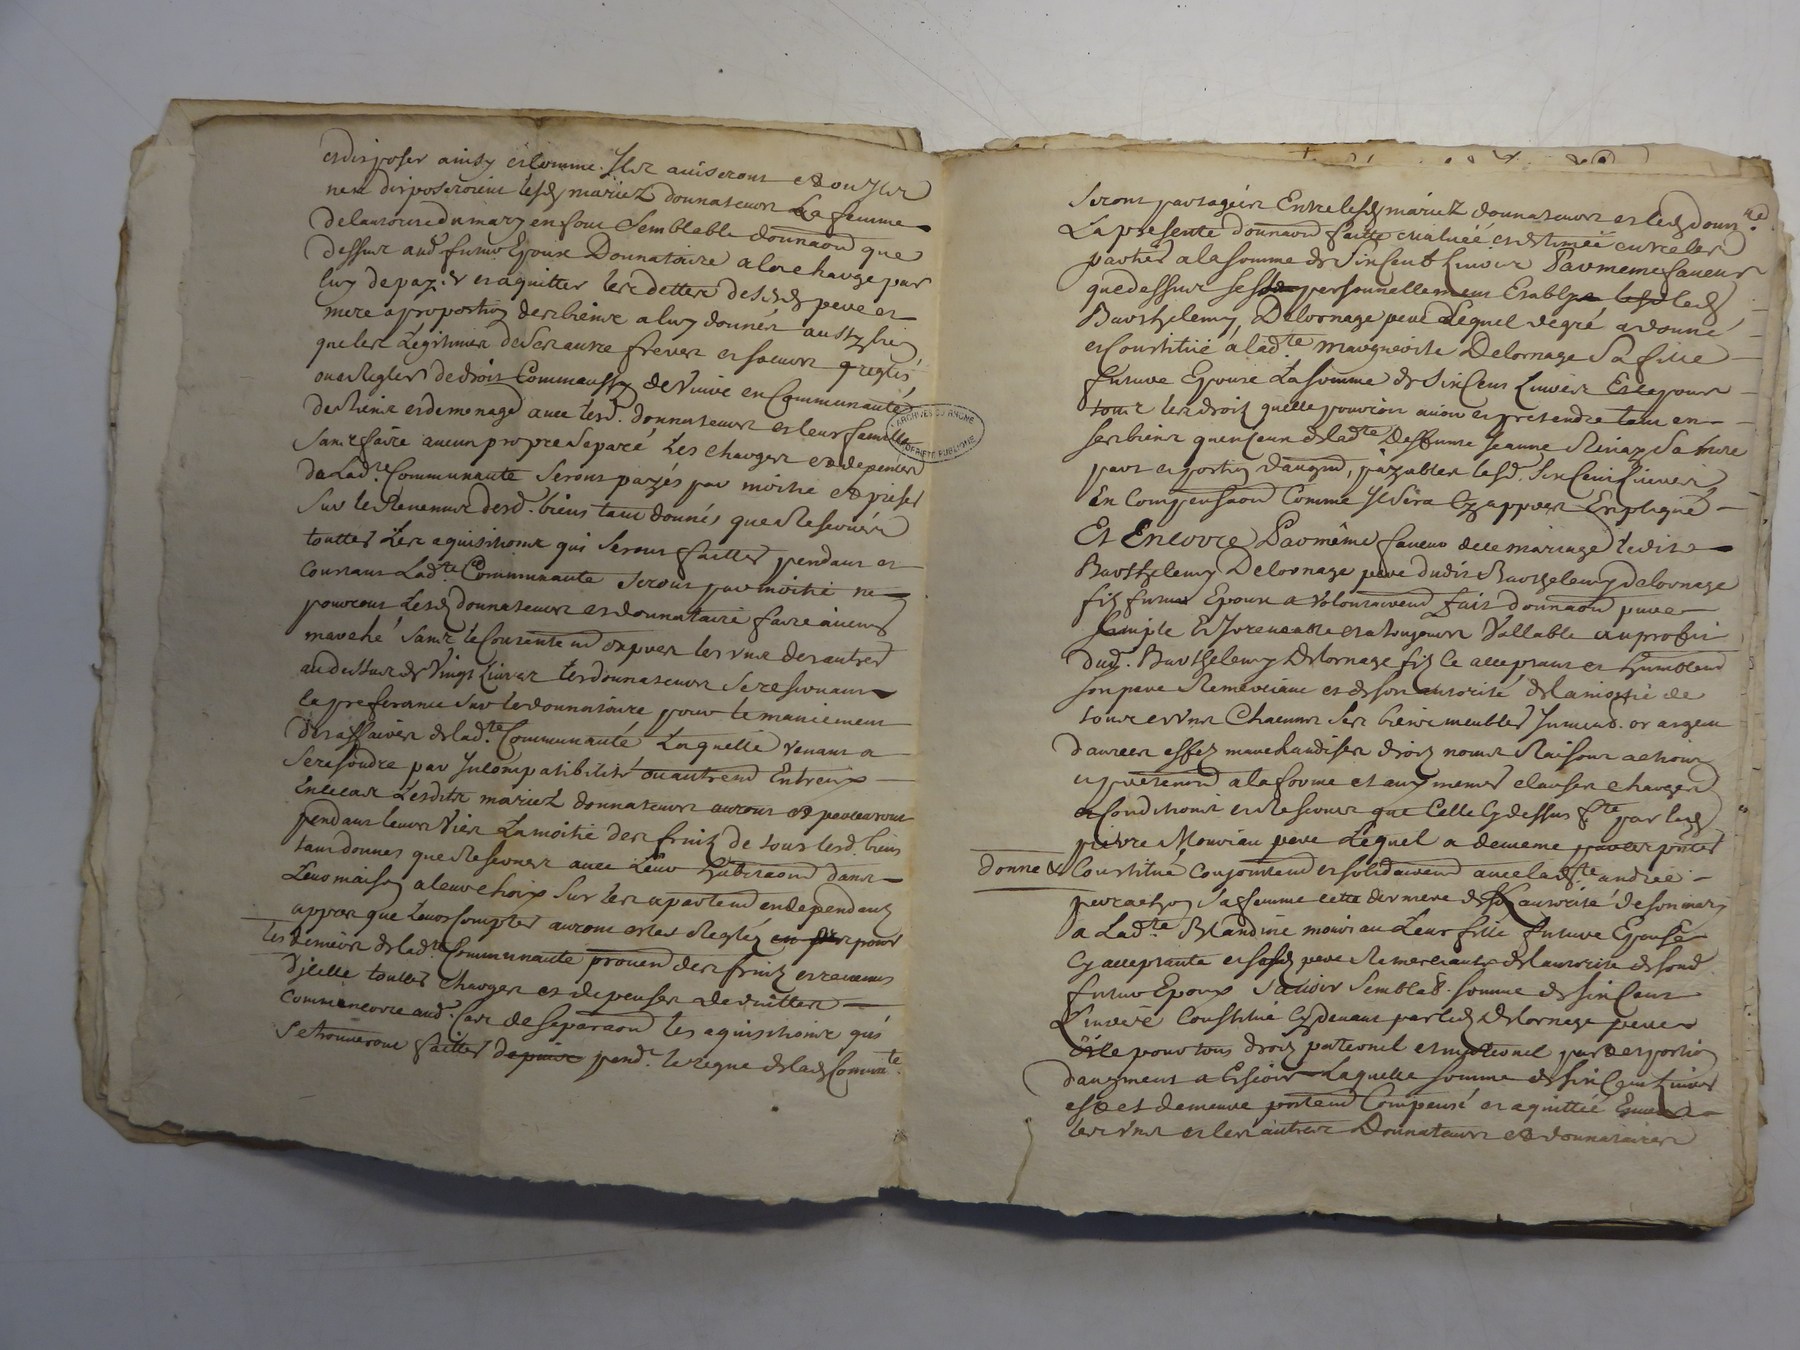 et disposer ainsy et comme Ils aviseront et ou Ils
nen disposeroient lesd mariez donnateurs La femme
de lautorité du mary en font Semblable donnaõn que
dessus aud futur Epoux Donnataire a la charge par
luy de payer et aquitter les dettes desd pere et
mere a proportion des biens a luy donnés aussy bien
que les Légitimes de Ses autre freres et soeurs reglés
ou a Regler de droit Comme aussy de Vivre en Communauté
de biens et de menage avec lesd. donnateurs et leur famille
Sans faire aucun propre Separé Les charges et depences
de Lad.te Communauté Seront payés par moitié et prises
Sur le Revenus desd. biens tant donnés que Reservés
touttes Les aquisitions qui Seront faittes pendant et
Courant Lad.te Communauté Seront par moitié ne
pourront Lesd donnateurs et donnataire faire aucun
marché Sans le Consentem exprès les uns des autres
au dessus de Vingt Livres les donnateurs Se reservant
la preferance Sur le donnataire pour le maniement
des affaires de lad.te Communauté Laquelle venant a
Se resoudre par Incompatibilité ou autrem Entreux
En ce cas Lesdits mariez donnateurs auront et percevront
pendant leurs Vies La moitié des fruits de tous lesd. biens
tant donnés que Reservés avec Leur habitaõn dans
Leur maison a leur choix Sur les apartem en dependants
apres que Leurs Comptes auront estes Reglés
les deniers de lad.te Communauté provend des fruits et revenus
D'jcelle toutes charges et depenses deduittes
Comme encore aud. Cas de Separaõn les aquisitions qui
Se trouveront faittes depuis pend.t le regne de lad Commté.
Seront partagées Entre lesd mariez donnateurs et led donn.re
La presente donnaõn faitte evaluée et estimée entre les
parties a la somme de Six Cent Livres Par meme faveur
que dessus Sest personnellement Estably led
Barthelemy Delornage pere Lequel de gré a donné
et Constitué a lad.te marguerite Delornage Sa fille
future Epouse La somme de Six Cent Livres Et le pour
tous les droits quelle pouvoit avoir et pretendre tant en
ses biens quen ceux de lad.te Deffunte Jeanne Sa mere
part et portion daugmd, payables lesd. Six Cent Livres
En Compensaõn Comme Il Sera Cy apres Expliqué
Et Encore Par même faveur de ce mariage ledit
Barthelemy Delornage pere dudit Barthelemy delornage
fils futur Epoux a volontairem fait donnaõn pure
Simple Irrevocable et a toujours Vallable au profit
dud. Barthelemy Delornage fils Ce acceptant et humblem
son pere Remerciant et de son autorité de la moitié de
tous et uns Chacuns Ses biens meubles Immeub. or argent
danrées effets marchandises droits noms Raisons actions
et pretend a la forme et aux memes clauses charges
et Conditions et Reserves que Celle Cydessus f.te par led
pierre Mouriau pere Lequel a de meme
donné & Constitué Conjointem et solidairem avec lad.te andrée
Sa femme cette derniere de l'autorité de son mary
a Lad.te Blandine mouriau Leur fille future Epouse
Cy acceptante et sesd pere Remerciant de lautorité de sond
futur Epoux Scavoir Semblab. somme de Six Cent
Livres Constitué Cy devant par led Delornage pere
Et le pour tous droits paternel et maternel part et portion
daugment a Echoir Laquelle somme de Six Cent Livres
est et demeure Compensé et aquittée Entre
les uns et les autres Donnateurs et donnataires
ARCHIVES DU RHONE
PROPRIETE PUBLIQUE